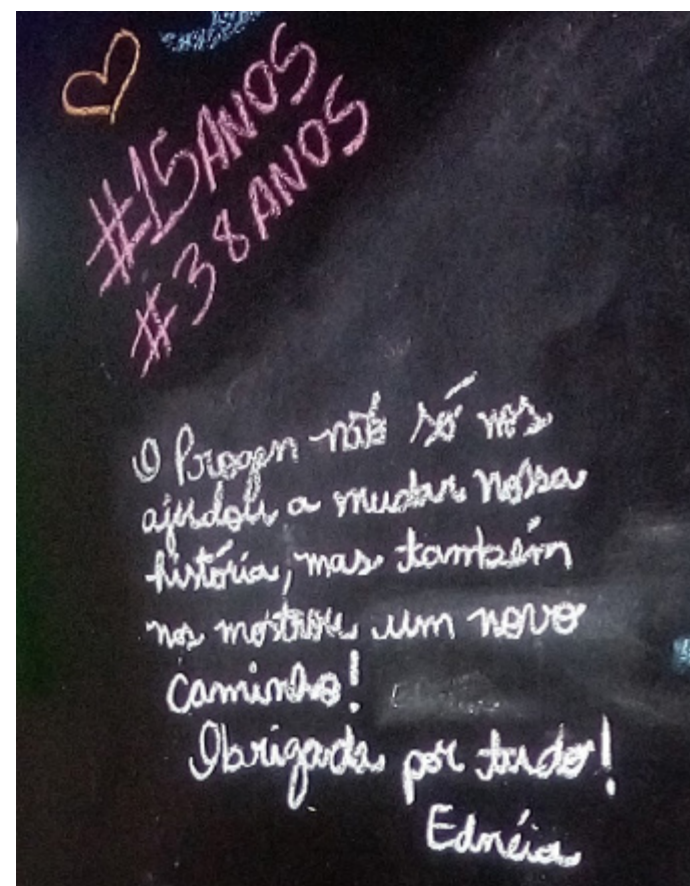 #15ANOS
#38ANOS
O Progen não só nos
ajudou a mudar nossa
história, mas também
nos mostrou um novo
caminho!
Obrigada por tudo!
Ednéia